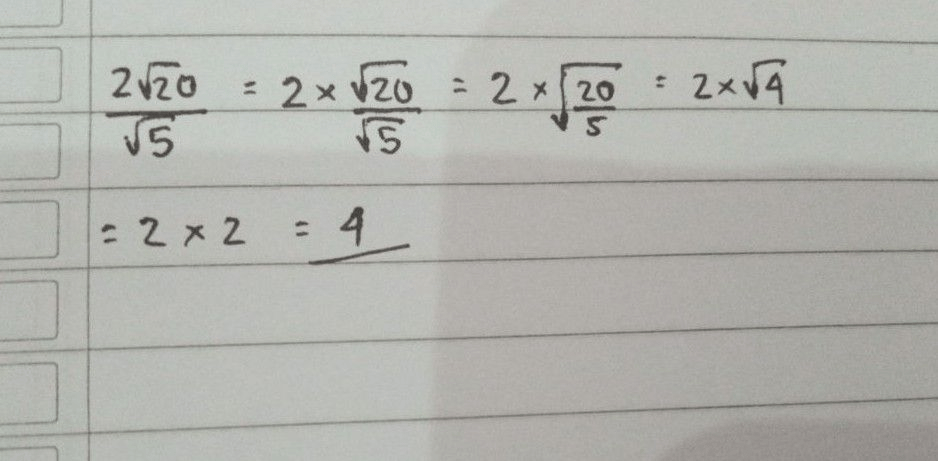 2√20/√5 = 2 × √20/√5 = 2 × √(20/5) = 2 × √4
= 2 × 2 = 4